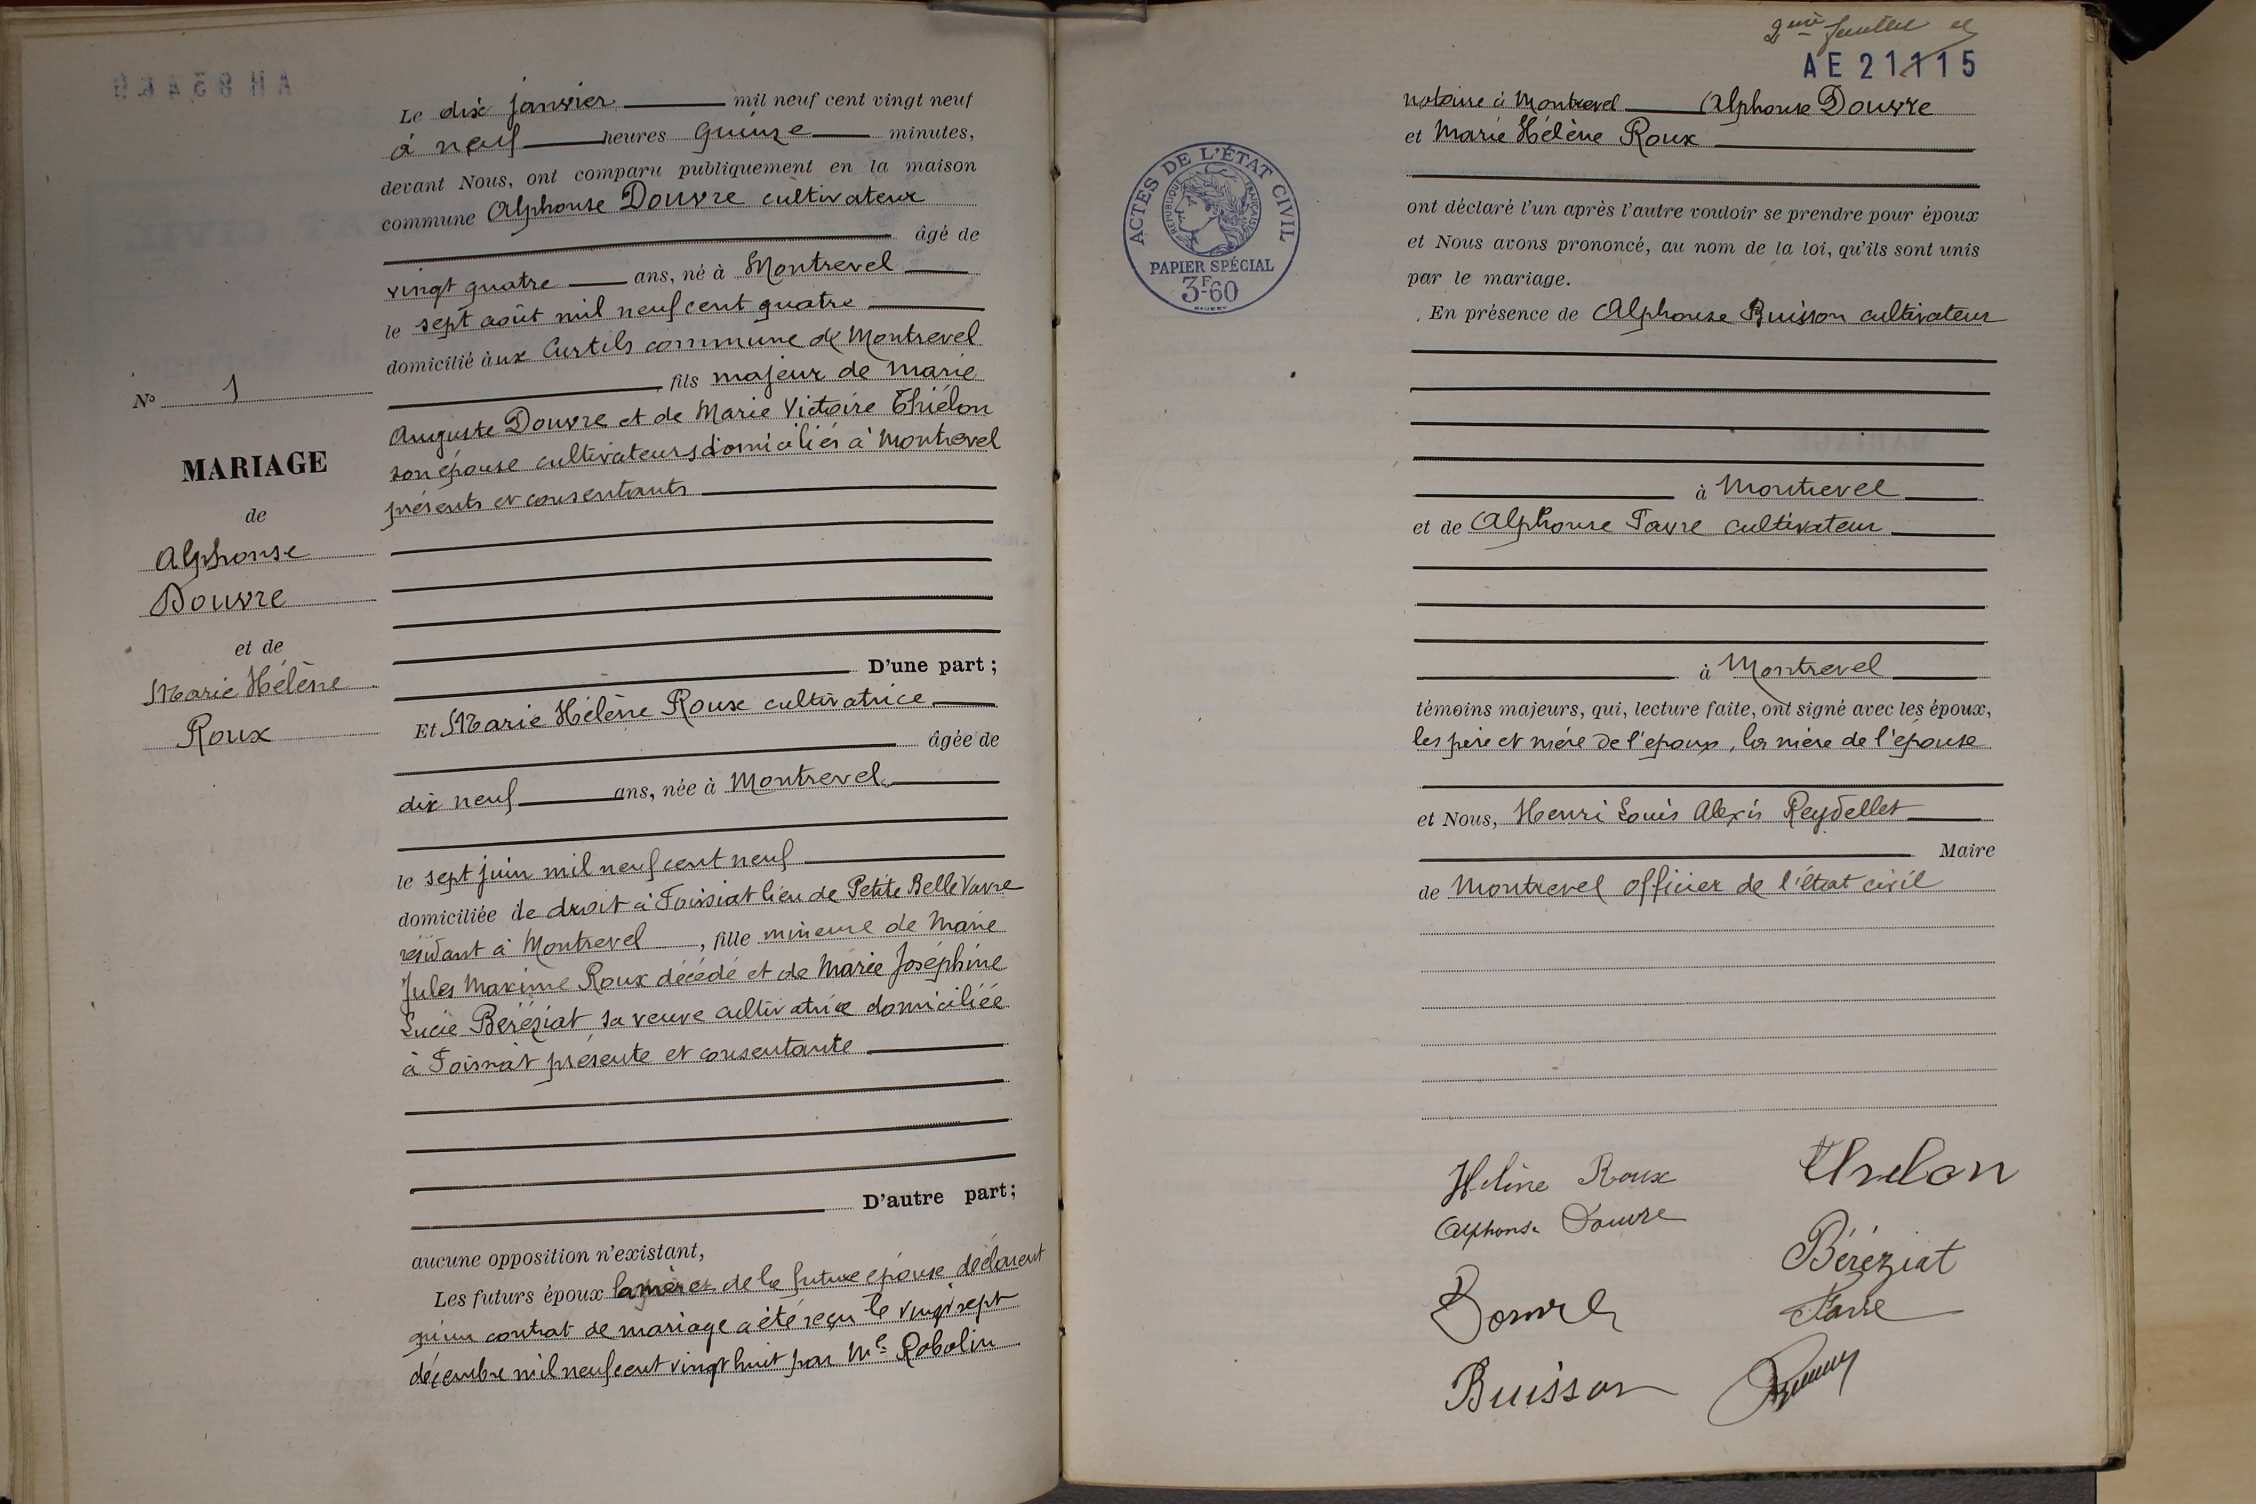 Le dix janvier mil neuf cent vingt neuf
à neuf heures quinze minutes,
devant Nous, ont comparu publiquement en la maison
commune Alphonse Douvre cultivateur
âgé de
vingt quatre ans, né à Montrevel
le sept août mil neuf cent quatre
domicilié aux Curtils commune de Montrevel
fils majeur de Marie
Auguste Douvre et de Marie Victoire Thiélon
son épouse cultivateurs domiciliés à Montrevel
présents et consentants
D'une part ;
Et Marie Hélène Roux cultivatrice
âgée de
dix neuf ans, née à Montrevel
le sept juin mil neuf cent neuf
domiciliée de droit à Foissiat lieu de Petite Belle Vavre
résidant à Montrevel, fille mineure de Marie
Jules Maxime Roux décédé et de Marie Joséphine
Lucie Béréziat sa veuve cultivatrice domiciliée
à Foissiat présente et consentante
D'autre part ;
aucune opposition n'existant,
Les futurs époux la mère de la future épouse déclarent
qu'un contrat de mariage a été reçu le vingt sept
décembre mil neuf cent vingt huit par Me Robolin
No 1
MARIAGE
de
Alphonse
Douvre
et de
Marie Hélène
Roux
2eme feuillet
AE 21115
notaire à Montrevel Alphonse Douvre
et Marie Hélène Roux
ont déclaré l'un après l'autre vouloir se prendre pour époux
et Nous avons prononcé, au nom de la loi, qu'ils sont unis
par le mariage.
En présence de Alphonse Buisson cultivateur
à Montrevel
et de Alphonse Favre cultivateur
à Montrevel
témoins majeurs, qui, lecture faite, ont signé avec les époux,
les père et mère de l'époux, la mère de l'épouse
et Nous, Henri Louis Alexis Reydellet
Maire
de Montrevel officier de l'état civil
ACTES DE L'ÉTAT CIVIL
RÉPUBLIQUE FRANÇAISE
PAPIER SPÉCIAL
3F60
Hélène Roux
Thielon
Alphonse Douvre
Béréziat
Douvre
Favre
Buisson